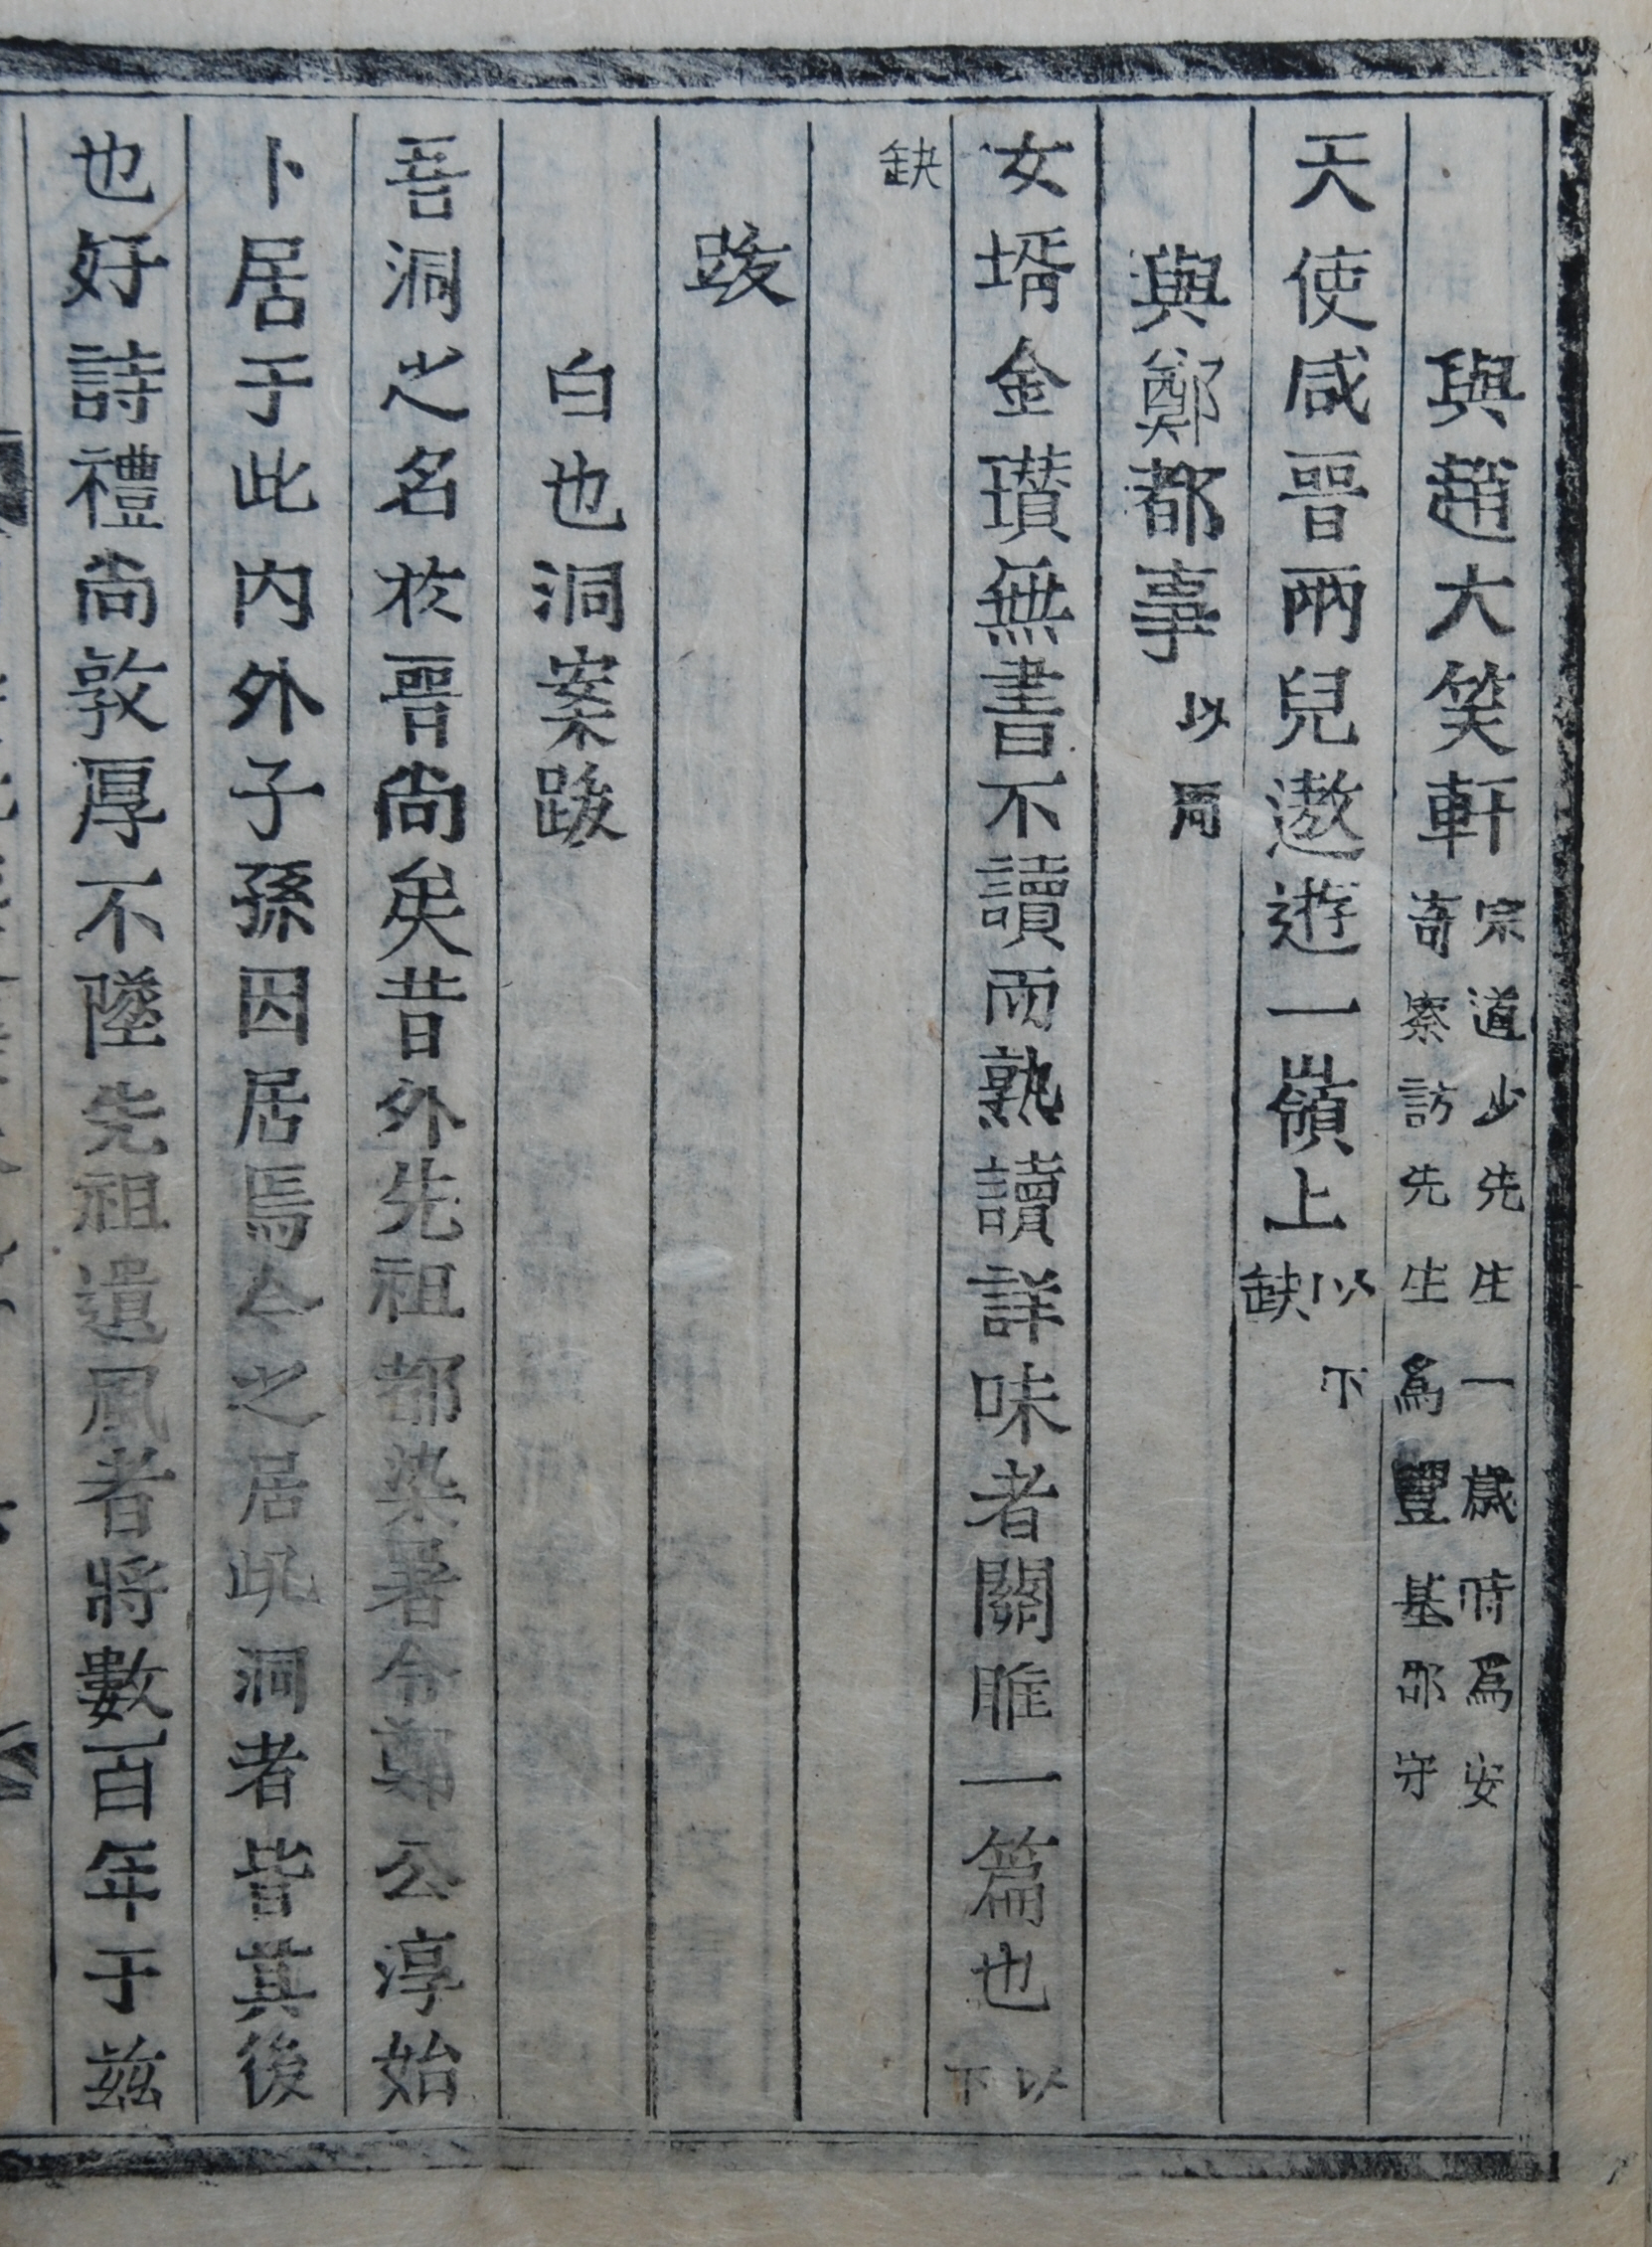 與趙大笑軒
宗道少先生一歲時爲安
奇察訪先生爲豐基郡守
天使咸晉兩兒遨遊一嶺上
以下
缺
與鄭都事
以周
女壻金瓚無書不讀而熟讀詳味者關雎一篇也
以
下
缺
跋
白也洞案跋
吾洞之名於晉尙矣昔外先祖都染署令鄭公淳始
卜居于此內外子孫因居焉今之居此洞者皆其後
也好詩禮尙敦厚不墜先祖遺風者將數百年于茲